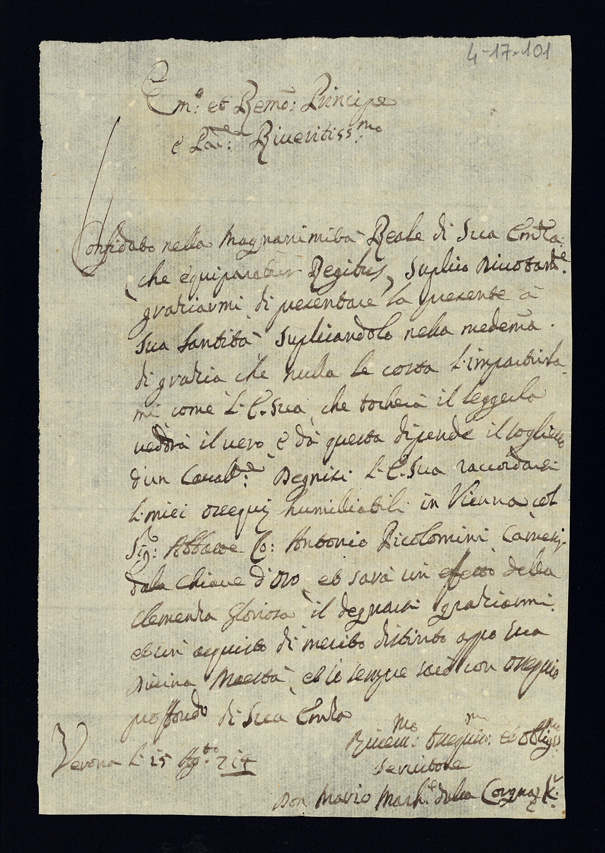 4-17-101
Em.º et Remo: Principe
è Pa:ⁿᵉ Riveritiss:mo
Confidato nella Magnanimità Reale di Sua Em.za
che equiparatur Regibus, suplico
graziarmi di presentare la presente à
Sua Santità suplicandolo nella medema
di grazia che nulla le costa l'impartirla
mi come l'E. Sua, che tocherà il leggerla
vedrà il vero, è dà questa dipende il
d'un Degnisi l'E. Sua raccordarsi
l'miei ossequij humilliatili in Vienna col
Sig: Abbate Co: Antonio Picolomini
dala Chiave d'oro et sarà un effetto della
Clemenza gloriosa il degnarsi graziarmi
et un aquisto di merito distinto apo Sua
Divina Maestà, et io sempre sarò con ossequio
proffondo di Sua Em.za
Verona l. 15 Ag:to 714
et obligmo
Servitore
Don Mario March:e dela Corgna